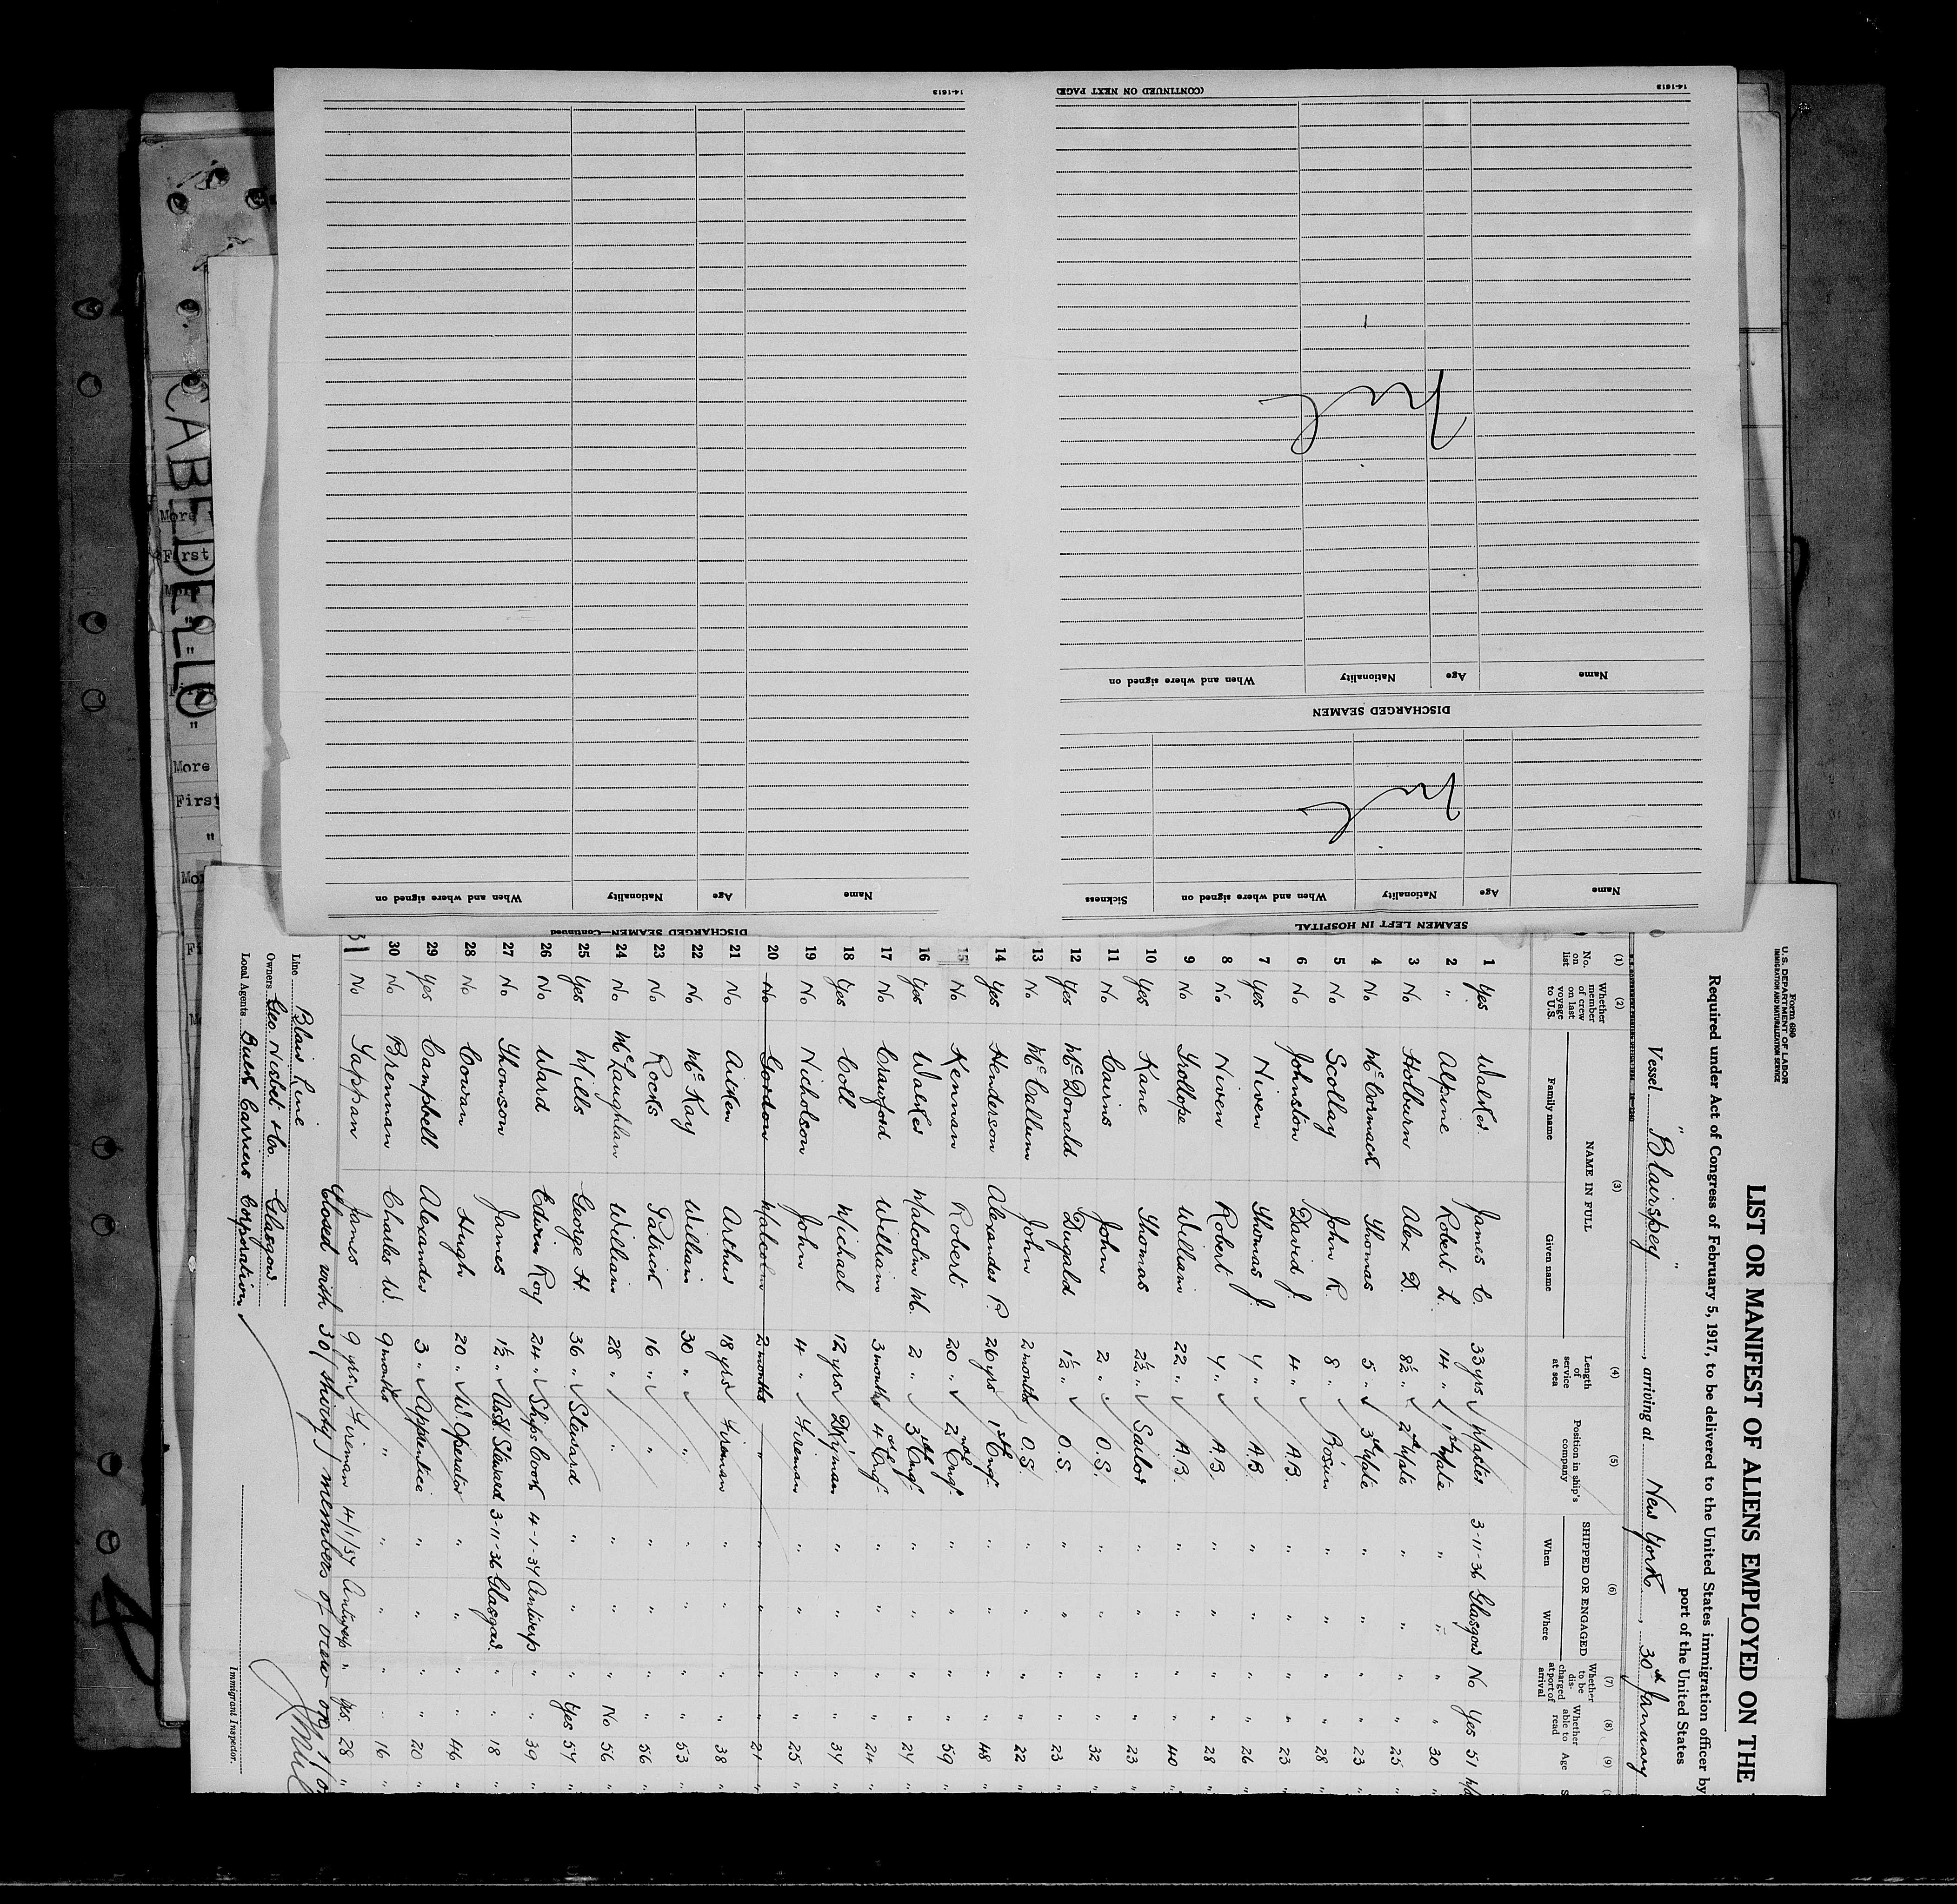 14-1613
(CONTINUED ON NEXT PAGE)
14-1613
Nil
Name
Age
Nationality
When and where signed on
DISCHARGED SEAMEN
Nil
Name
Age
Nationality
When and where signed on
Sickness
SEAMEN LEFT IN HOSPITAL
Name
Age
Nationality
When and where signed on
DISCHARGED SEAMEN—Continued
CABEDELLO
More
First
More
"
"
"
More
First
"
Form 680
U.S. DEPARTMENT OF LABOR
IMMIGRATION AND NATURALIZATION SERVICE
LIST OR MANIFEST OF ALIENS EMPLOYED ON THE
Required under Act of Congress of February 5, 1917, to be delivered to the United States immigration officer by
port of the United States
Vessel "Blairspey", arriving at New York, 30th January
(1) (2) (3) (4) (5) (6) (7) (8) (9)
No. on list
Whether member of crew on last voyage to U.S.
NAME IN FULL
Family name
Given name
Length of service at sea
Position in ship's company
SHIPPED OR ENGAGED
When
Where
Whether to be discharged at port of arrival
Whether able to read
Age
1 Yes Walker James C. 33 yrs Master 3-11-36 Glasgow No Yes 51
2 " Alpine Robert L. 14 " 1st Mate " " " " 30 "
3 No Holburn Alex D. 8½ " 2nd Mate " " " " 25 "
4 No McCormack Thomas 5 " 3rd Mate " " " " 23 "
5 No Scollay John R. 8 " Bosun " " " " 28 "
6 No Johnston David J. 4 " A.B. " " " " 23 "
7 Yes Niven Thomas J. 7 " A.B. " " " " 26 "
8 No Niven Robert 7 " A.B. " " " " 28 "
9 No Trollope William 22 " A.B. " " " " 40 "
10 Yes Kane Thomas 2½ " Sailor " " " " 23 "
11 No Cairns John 2 " O.S. " " " " 32 "
12 Yes McDonald Dugald 1½ " O.S. " " " " 23 "
13 No McCallum John 2 months O.S. " " " " 22 "
14 Yes Henderson Alexander P. 26 yrs 1st Eng. " " " " 48 "
15 No Kennan Robert 20 " 2nd Engr. " " " " 59 "
16 Yes Walker Malcolm M. 2 " 3rd Engr. " " " " 24 "
17 No Crawford William 3 months 4th Eng. " " " " 24 "
18 Yes Coll Michael 12 yrs Dkyman " " " " 34 "
19 No Nicholson John 4 " Fireman " " " " 25 "
20 No Gordon Malcolm 2 months " " " " " 21 "
21 No Aitken Arthur 18 yrs Fireman " " " " 38 "
22 No McKay William 30 " " " " " " 53 "
23 No Rocks Patrick 16 " " " " " " 56 "
24 No McLaughlan William 28 " " " " " No 56 "
25 Yes Mills George H. 36 " Steward " " " Yes 57 "
26 No Ward Edwin Roy 24 " Ships Cook 4-1-37 Antwerp " " 39 "
27 No Thomson James 1½ " Asst Steward 3-11-36 Glasgow " " 18 "
28 No Cowan Hugh 20 " W. Operator " " " " 46 "
29 Yes Campbell Alexander 3 " Apprentice " " " " 20 "
30 No Brennan Charles W. 9 months " " " " " 16 "
31 No Tappan James 9 yrs Fireman 4/1/37 Antwerp " Yes 28 "
Closed with 30 (thirty) members of crew
Line Blair Line
Owners Geo. Nisbet & Co. Glasgow.
Local Agents Bulk Carriers Corporation
Immigrant Inspector.